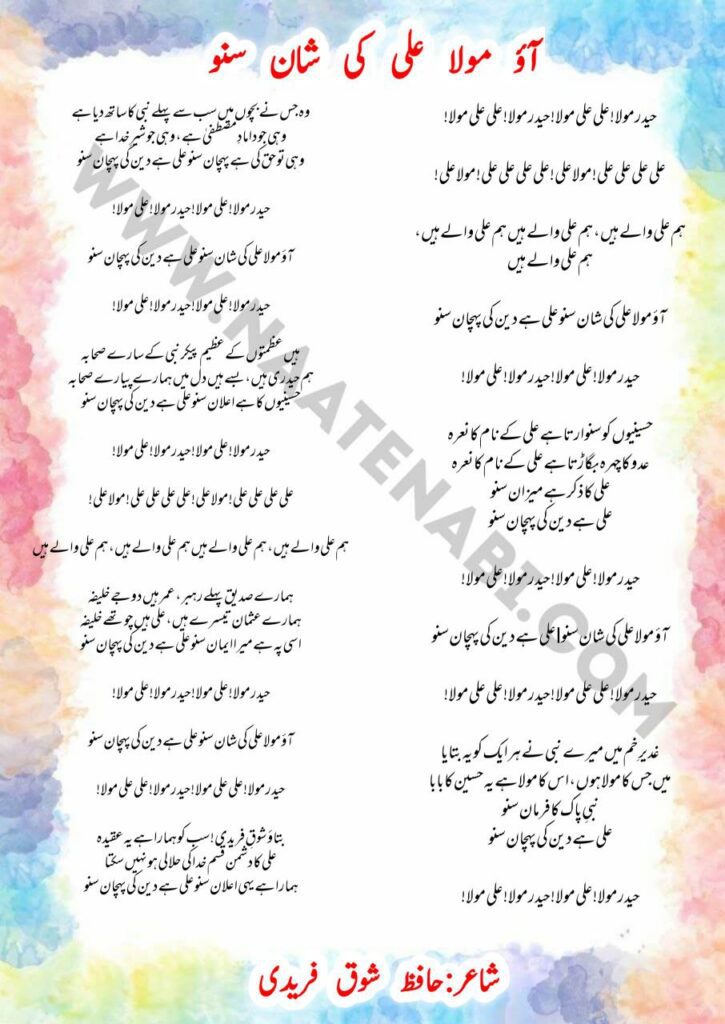 آؤ مولا علی کی شان سنو
حیدر مولا! علی علی مولا! حیدر مولا! علی علی مولا!
علی علی علی علی! مولا علی! علی علی علی علی! مولا علی!
ہم علی والے ہیں، ہم علی والے ہیں ہم علی والے ہیں،
ہم علی والے ہیں
آؤ مولا علی کی شان سنو علی ہے دین کی پہچان سنو
حیدر مولا! علی مولا! حیدر مولا! علی مولا!
حسینیوں کو سنوارتا ہے علی کے نام کا نعرہ
عدو کا چہرہ بگاڑتا ہے علی کے نام کا نعرہ
علی کا ذکر ہے میزان سنو
علی ہے دین کی پہچان سنو
حیدر مولا! علی مولا! حیدر مولا! علی مولا!
آؤ مولا علی کی شان سنو! علی ہے دین کی پہچان سنو
حیدر مولا! علی علی مولا! حیدر مولا! علی علی مولا!
غدیرِ خم میں میرے نبی نے ہر ایک کو یہ بتایا
میں جس کا مولا ہوں، اس کا مولا ہے یہ حسین کا بابا
نبیِ پاک کا فرمان سنو
علی ہے دین کی پہچان سنو
حیدر مولا! علی مولا! حیدر مولا! علی مولا!
وہ جس نے بچوں میں سب سے پہلے نبی کا ساتھ دیا ہے
وہی جو دامادِ مصطفیٰ ہے، وہی جو شیرِ خدا ہے
وہی تو حق کی ہے پہچان سنو علی ہے دین کی پہچان سنو
حیدر مولا! علی مولا! حیدر مولا! علی مولا!
آؤ مولا علی کی شان سنو علی ہے دین کی پہچان سنو
حیدر مولا! علی مولا! حیدر مولا! علی مولا!
ہیں عظمتوں کے عظیم پیکر نبی کے سارے صحابہ
ہم حیدری ہیں، بسے ہیں دل میں ہمارے پیارے صحابہ
حسینیوں کا ہے اعلان سنو علی ہے دین کی پہچان سنو
حیدر مولا! علی مولا! حیدر مولا! علی مولا!
علی علی علی علی! مولا علی! علی علی علی علی! مولا علی!
ہم علی والے ہیں، ہم علی والے ہیں ہم علی والے ہیں، ہم علی والے ہیں
ہمارے صدیق پہلے رہبر، عمر ہیں دوجے خلیفہ
ہمارے عثمان تیسرے ہیں، علی ہیں چوتھے خلیفہ
اسی پہ ہے میرا ایمان سنو علی ہے دین کی پہچان سنو
حیدر مولا! علی مولا! حیدر مولا! علی مولا!
آؤ مولا علی کی شان سنو علی ہے دین کی پہچان سنو
حیدر مولا! علی علی مولا! حیدر مولا! علی علی مولا!
بتاؤ شوقِ فریدی! سب کو ہمارا ہے یہ عقیدہ
علی کا دشمن قسم خدا کی حلالی ہو نہیں سکتا
ہمارا ہے یہی اعلان سنو علی ہے دین کی پہچان سنو
شاعر: حافظ شوق فریدی
WWW.NAATENABI.COM